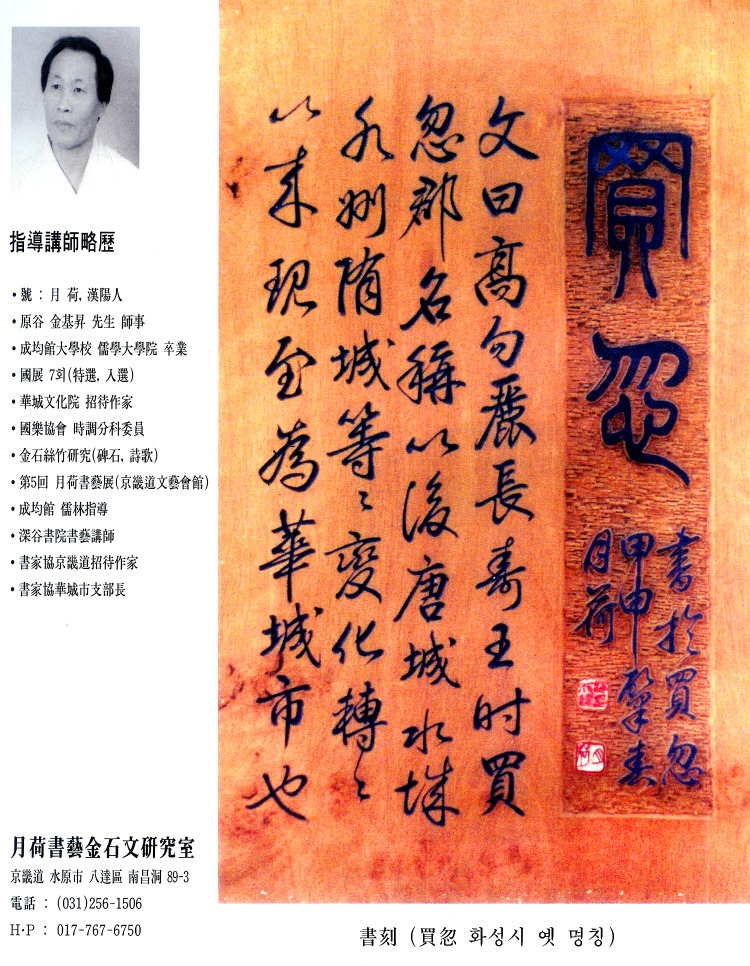 指導講師略歷
・號 : 月 荷, 漢陽人
・原谷 金基昇 先生 師事
・成均館大學校 儒學大學院 卒業
・國展 7회(特選, 入選)
・華城文化院 招待作家
・國樂協會 時調分科委員
・金石絲竹硏究(碑石, 詩歌)
・第5回 月荷書藝展(京畿道文藝會館)
・成均館 儒林指導
・深谷書院書藝講師
・書家協京畿道招待作家
・書家協華城市支部長
月荷書藝金石文硏究室
京畿道 水原市 八達區 南昌洞 89-3
電話 : (031)256-1506
H·P : 017-767-6750
買忽
書於買忽
甲申肇春
月荷
文曰高句麗長壽王时買
忽郡名稱以後唐城水城
水州隋城等々變化轉々
以来現至為華城市也
書刻 (買忽 화성시 옛 명칭)